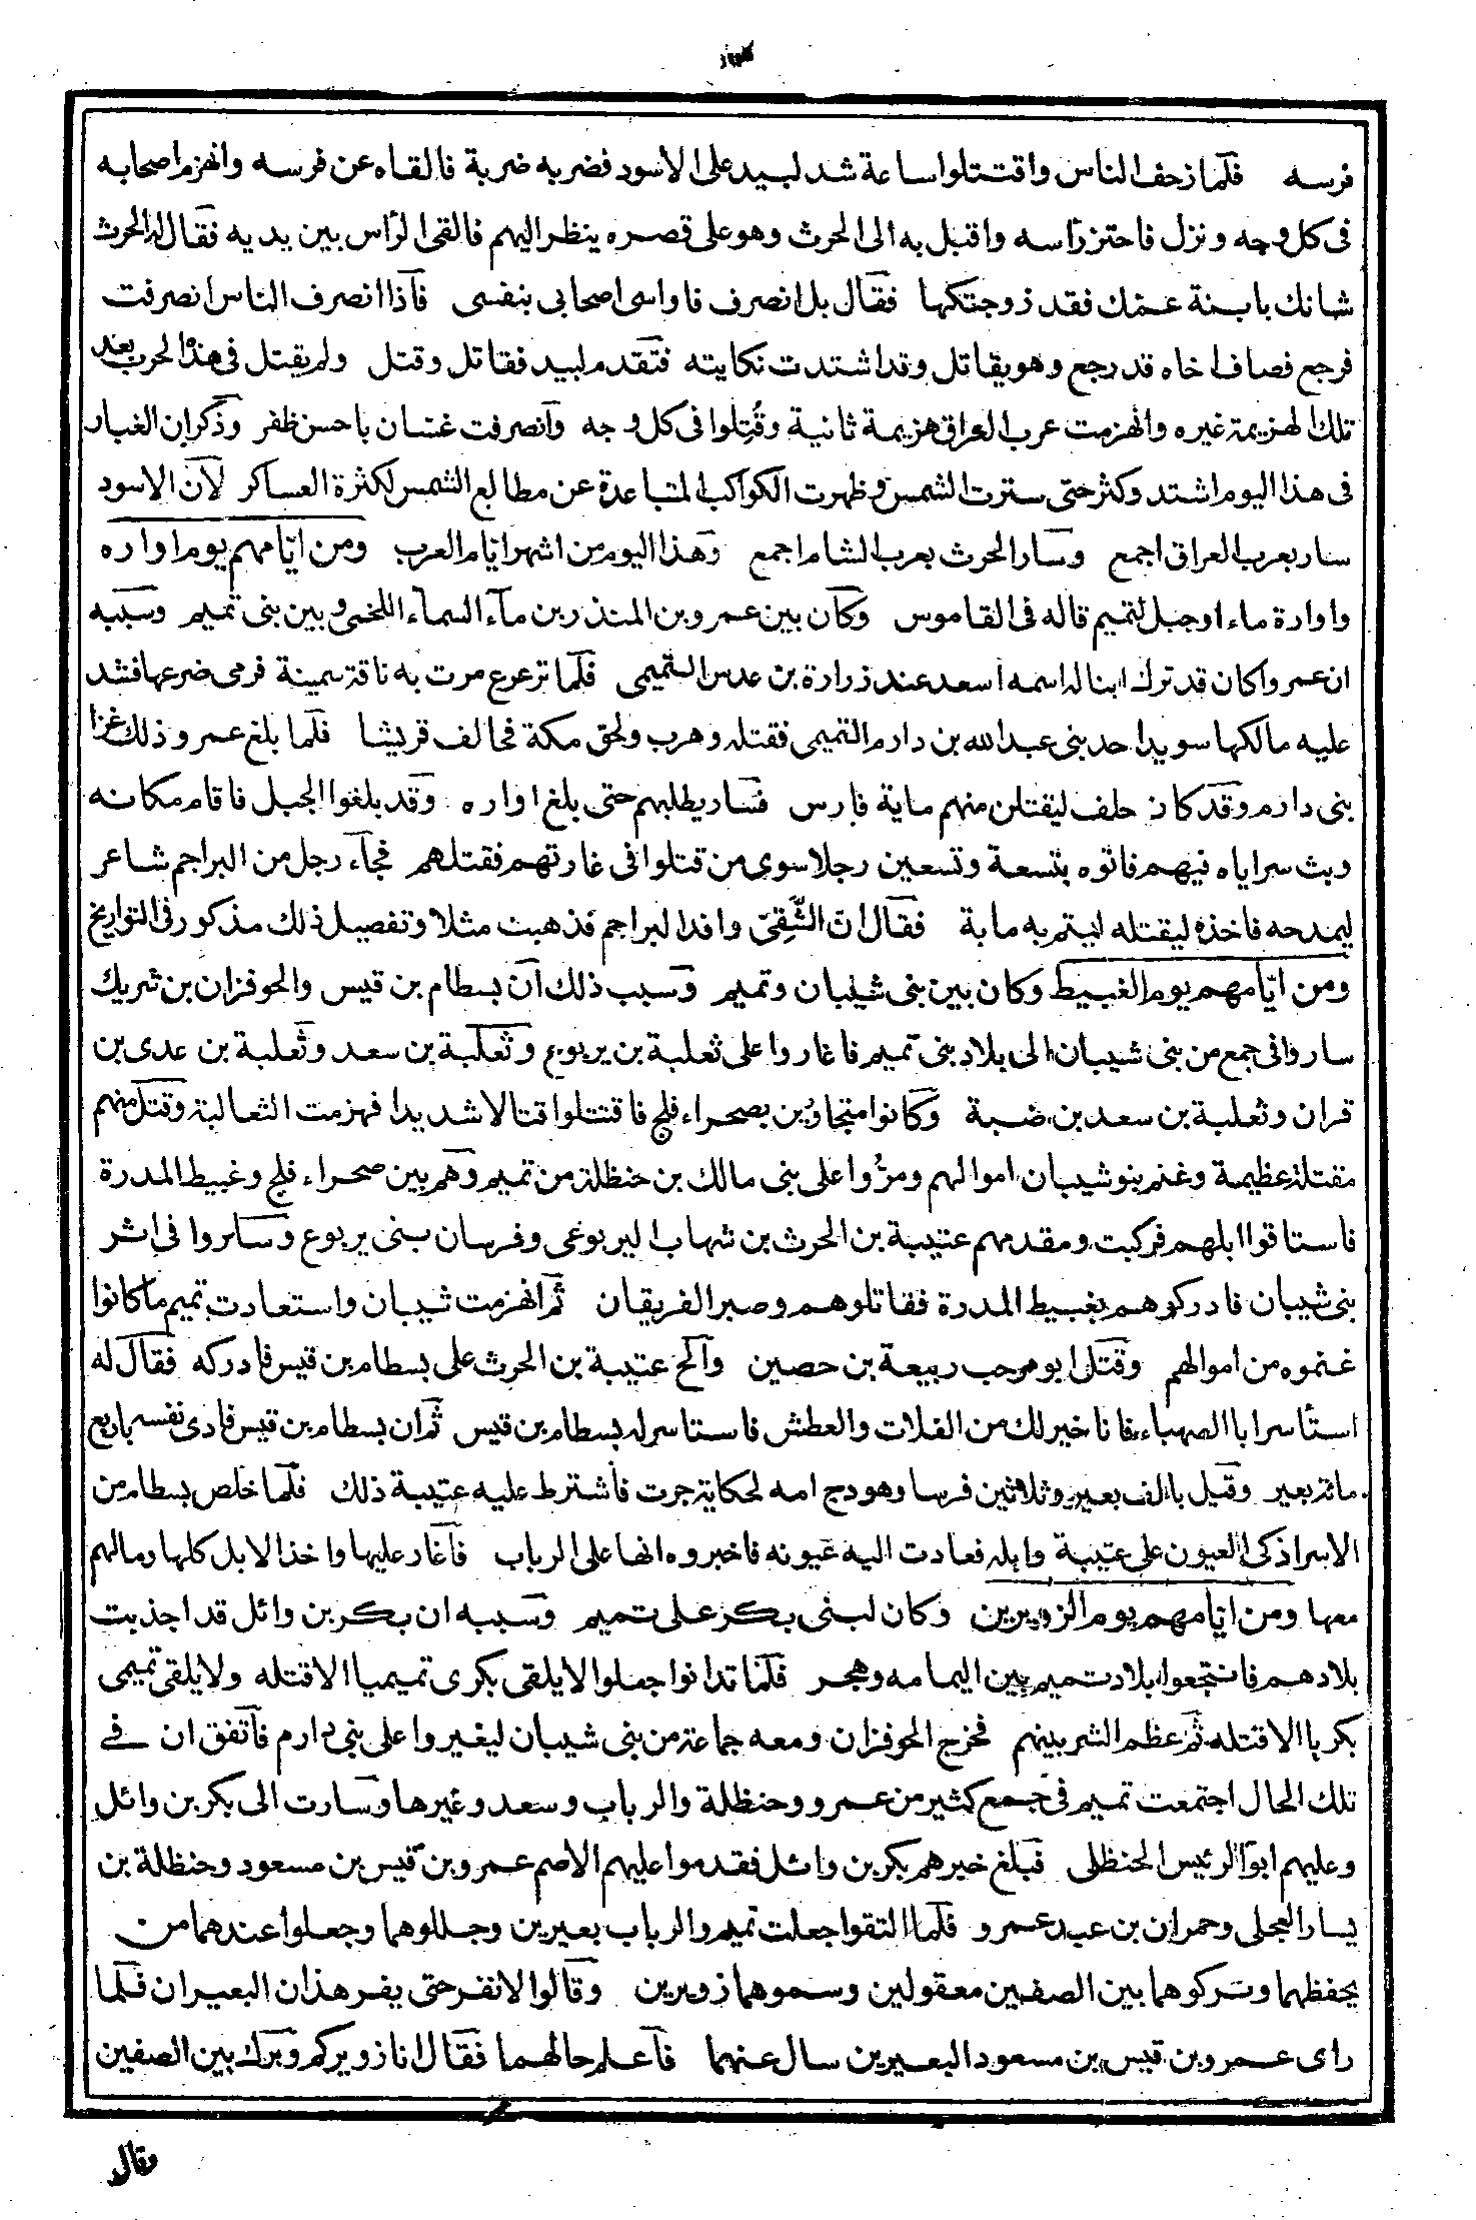 فرسه فلما زحف الناس واقتتلوا ساعة شد لبيد على الاسود فضربه ضربة فالقاه عن فرسه وانهزم اصحابه
فى كل وجه ونزل فاحتز رأسه واقبل به الى الحرث وهو على قصره ينظر اليهم فالقى الرأس بين يديه فقال له الحرث
شانك بابنة عمك فقد زوجتكها فقال بل انصرف فاواسى اصحابى بنفسى فاذا انصرف الناس انصرفت
فرجع فصاف اخاه قد رجع وهو يقاتل وقد اشتدت نكايته فتقدم لبيد فقاتل وقتل ولم يقتل فى هذا الحرب بعد
تلك الهزيمة غيره وانهزمت عرب العراق هزيمة ثانية وقُتِلوا فى كل وجه وانصرفت غسان باحسن ظفر وذكر ان الغبار
فى هذا اليوم اشتد وكثر حتى سترت الشمس وظهرت الكواكب المتباعدة عن مطالع الشمس لكثرة العساكر لان الاسود
سار بعرب العراق اجمع وسار الحرث بعرب الشام اجمع وهذا اليوم من اشهر ايام العرب ومن ايامهم يوم اواره
واوارة ماء او جبل لتميم قاله فى القاموس وكان بين عمرو بن المنذر بن ماء السماء اللخمى وبين بنى تميم وسببه
ان عمروا كان قد ترك ابنا له اسمه اسعد عند زرارة بن عدس التميمى فلما ترعرع مرت به ناقة سمينة فرمى ضرعها فشد
عليه مالكها سويد احد بنى عبد الله بن دارم التميمى فقتله وهرب ولحق مكة فحالف قريشا فلما بلغ عمرو ذلك غزا
بنى دارم وقد كان حلف ليقتلن منهم ماية فارس فسار يطلبهم حتى بلغ اواره وقد بلغوا الجبل فاقام مكانه
وبث سراياه فيهم فاتوه بتسعة وتسعين رجلا سوى من قتلوا فى غارتهم فقتلهم فجآء رجل من البراجم شاعر
ليمدحه فاخذه ليقتله ليتم به ماية فقال ان الشَّقِىّ وافد البراجم فذهبت مثلا وتفصيل ذلك مذكور فى التواريخ
ومن ايامهم يوم الغبيط وكان بين بنى شيبان وتميم وسبب ذلك ان بسطام بن قيس والحوفزان بن شريك
ساروا فى جمع من بنى شيبان الى بلاد بنى تميم فاغاروا على ثعلبة بن يربوع وثعلبة بن سعد وثعلبة بن عدى بن
قران وثعلبة بن سعد بن ضبة وكانوا متجاوين بصحراء فلج فاقتتلوا قتالا شديدا فهزمت الثعالبة وقتل منهم
مقتلة عظيمة وغنم بنو شيبان اموالهم ومرُّوا على بنى مالك بن حنظلة من تميم وهم بين صحراء فلج وغبيط المدرة
فاستاقوا ابلهم فركبت ومقدمهم عتيبة بن الحرث بن شهاب اليربوعى وفرسان بنى يربوع وساروا فى اثر
بنى شيبان فادركوهم بغبيط المدرة فقاتلوهم وصبر الفريقان ثم انهزمت شيبان واستعادت تميم ما كانوا
غنموه من اموالهم وقتل ابو مرحب ربيعة بن حصين والح عتيبة بن الحرث على بسطام بن قيس فادركه فقال له
استأسر ابا الصهباء فانا خير لك من الفلات والعطش فاستاسر له بسطام بن قيس ثم ان بسطام بن قيس فادى نفسه باربع
مائة بعير وقيل بالف بعير وثلاثين فرسا وهودج امه لحكاية جرت فاشترط عليه عتيبة ذلك فلما خلص بسطام من
الاسر اذكى العيون على عتيبة وابله فعادت اليه عيونه فاخبروه انها على الرباب فاغار عليها واخذ الابل كلها ومالهم
معها ومن ايامهم يوم الزويرين وكان لبنى بكر على تميم وسببه ان بكر بن وائل قد اجذبت
بلادهم فانتجعوا بلاد تميم بين اليمامه وهجر فلما تدانوا جعلوا لا يلقى بكرى تميميا الا قتله ولا يلقى تميمى
بكريا الا قتله ثم عظم الشر بينهم فخرج الحوفزان ومعه جماعة من بنى شيبان ليغيروا على بنى دارم فاتفق ان فى
تلك الحال اجتمعت تميم فى جمع كثير من عمرو وحنظلة والرباب وسعد وغيرها وسارت الى بكر بن وائل
وعليهم ابو الرئيس الحنظلى فبلغ خبرهم بكر بن وائل فقدموا عليهم الاصم عمرو بن قيس بن مسعود وحنظلة بن
يسار العجلى وحمران بن عبد عمرو فلما التقوا جعلت تميم والرباب بعيرين وجللوهما وجعلوا عندهما من
يحفظهما وتركوهما بين الصفين معقولين وسموهما زويرين وقالوا لا نفر حتى يفر هذان البعيران فلما
راى عمرو بن قيس بن مسعود البعيرين سال عنهما فاعلم حالهما فقال انا زويركم وبرك بين الصفين
وقال